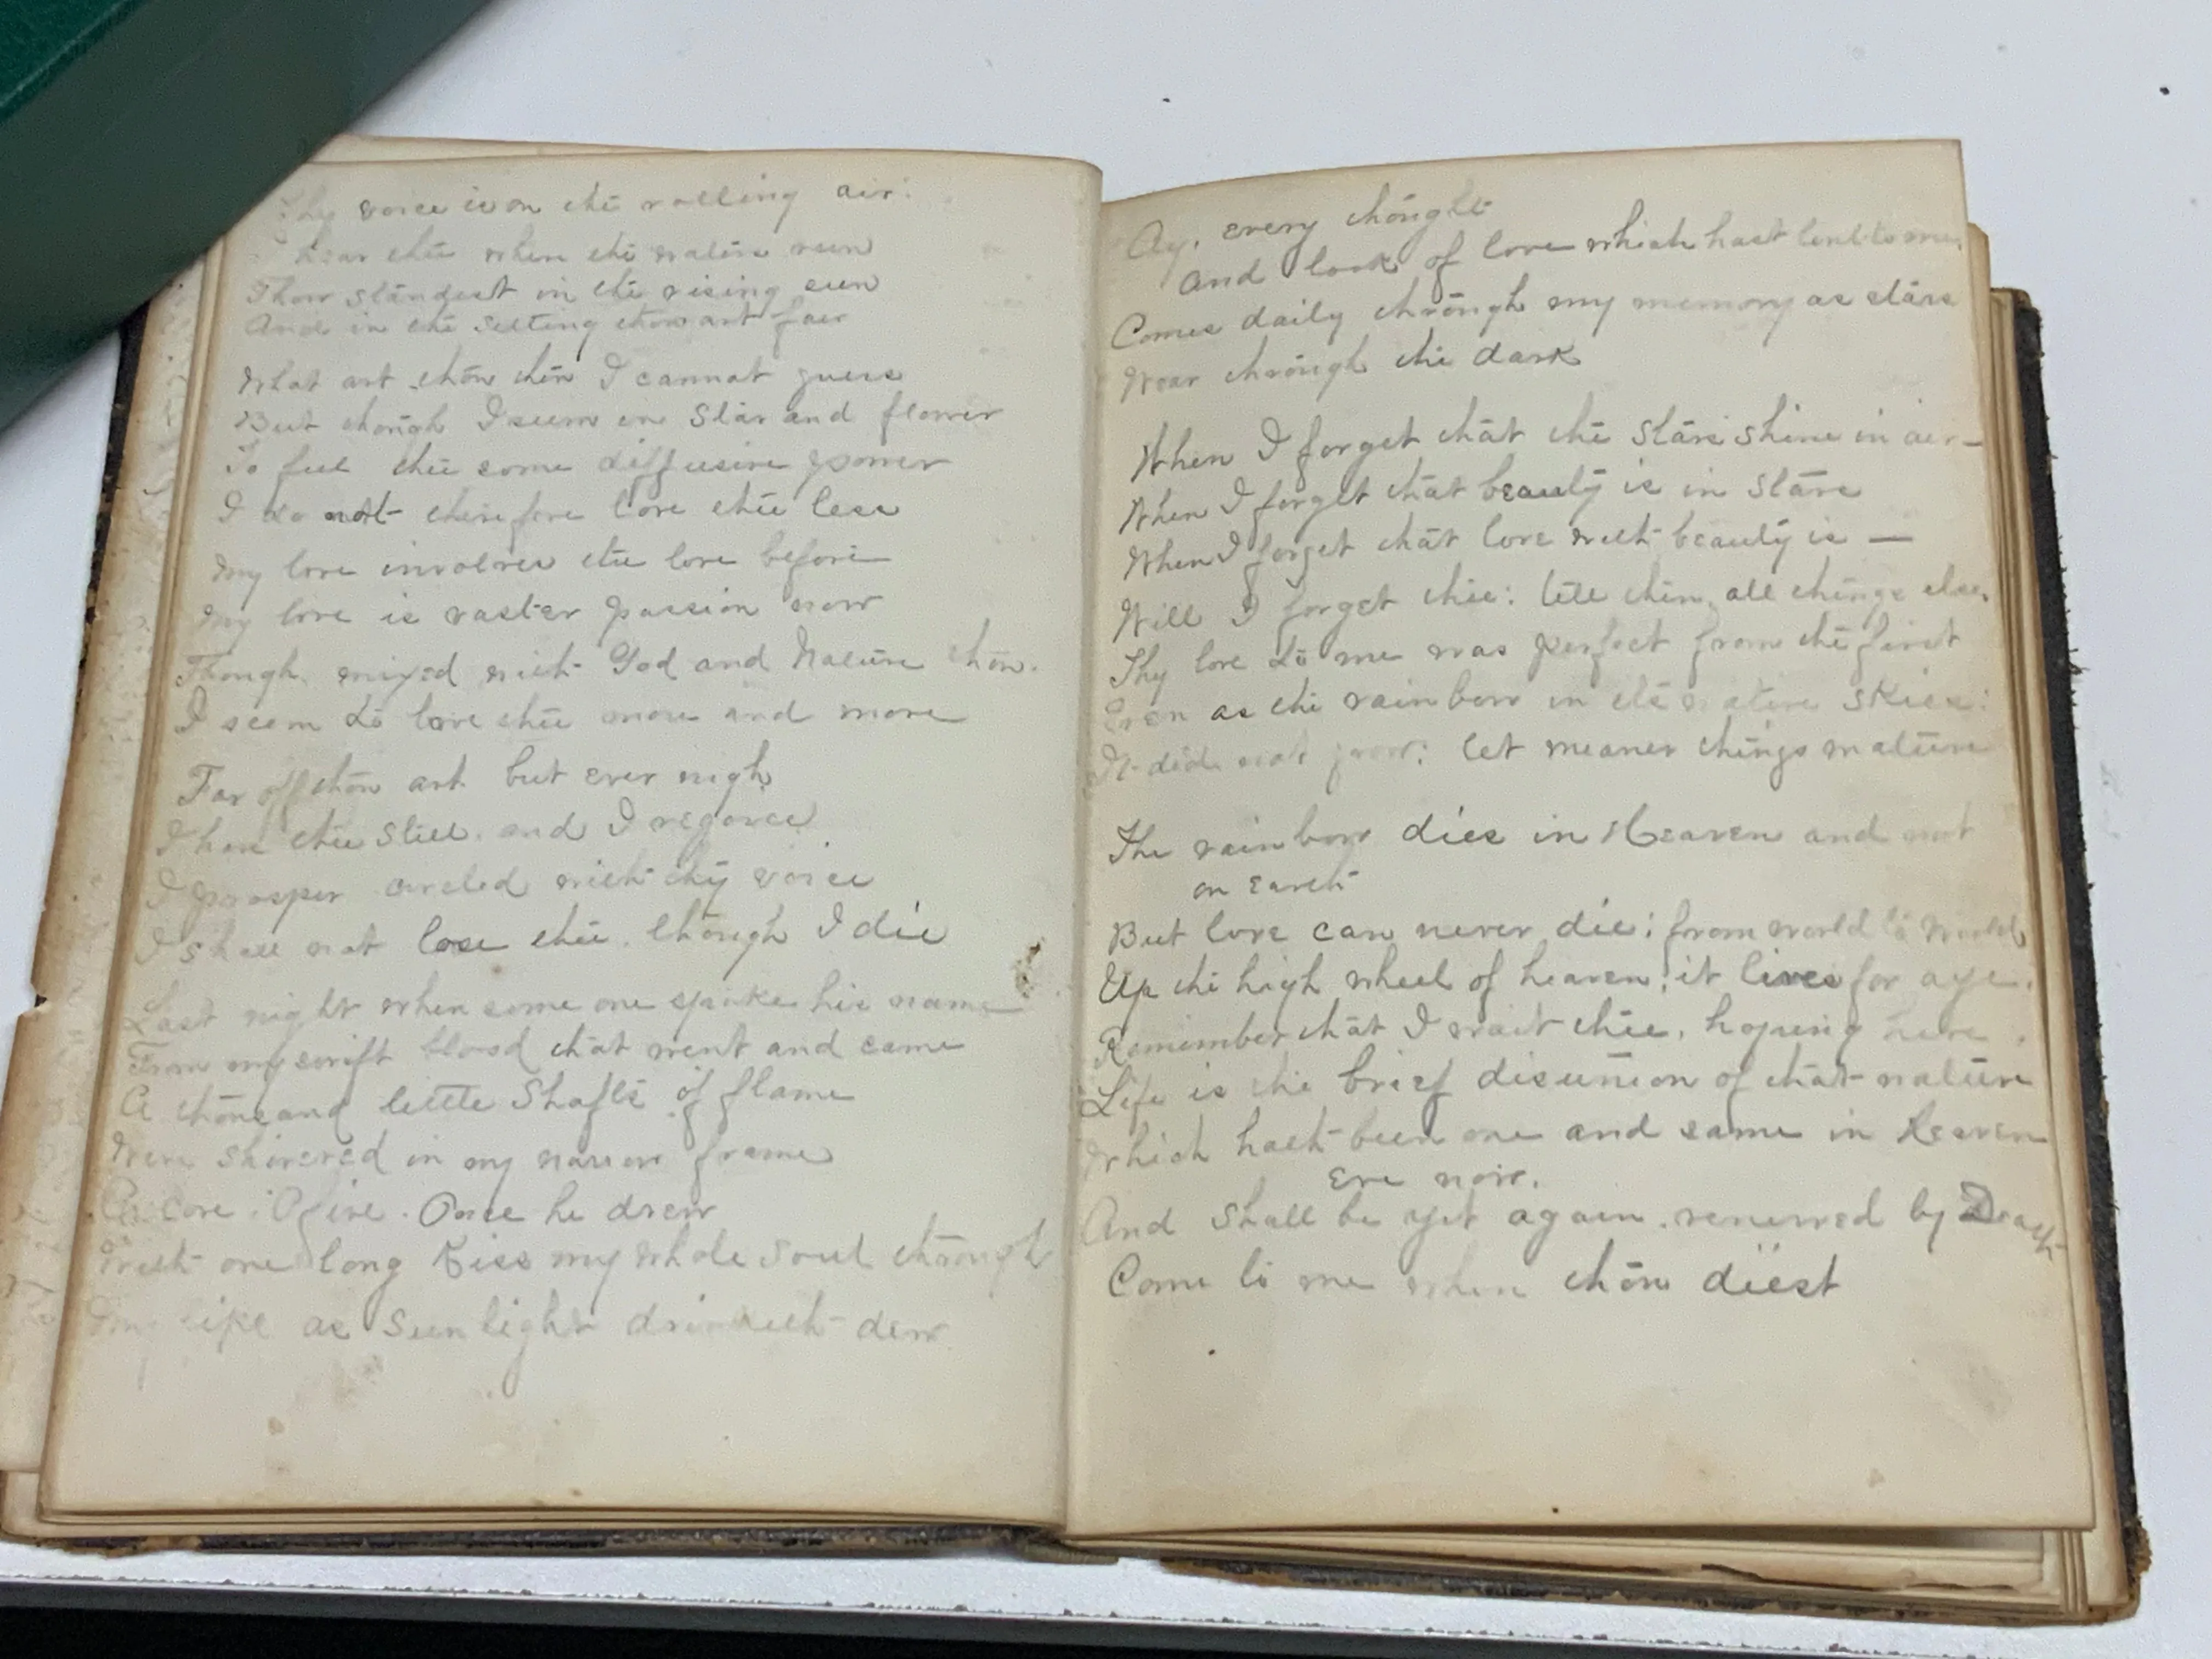 Thy voice is on the rolling air:
I hear thee when the waters run
Thou standest in the rising sun
And in the setting thou art fair
What art thou then I cannot guess
But though I seem in Star and flower
To feel thee some diffusive power
I do not therefore love thee less
My love involves the love before
My love is vaster passion now
Though mixed with God and Nature thou.
I seem to love thee more and more
Far off thou art but ever nigh
I have thee still. and I rejoice
I prosper circled with thy voice
I shall not lose thee. though I die
Last night when some one spoke his name
From my swift blood that went and came
A thousand little Shafts of flame
Were shivered in my narrow frame
O Love. O fire. Once he drew
With one long Kiss my whole soul through
My lips as Sunlight drinketh dew
Ay, every thought
And look of love which hast lent to me,
Comes daily through my memory as stars
Wear through the dark
When I forget that the Stars shine in air—
When I forget that beauty is in Stars
When I forget that love with beauty is —
Will I forget thee: till then, all things else.
Thy love to me was perfect from the first
Even as the rainbow in its native skies:
It did not grow: let meaner things mature
The rainbow dies in Heaven and not
on Earth
But love can never die: from world to world
Up the high wheel of heaven, it lives for aye.
Remember that I wait thee, hoping here.
Life is the brief disunion of that nature
Which hath been one and same in Heaven
Ere now.
And shall be yet again. renewed by Death
Come to me when thou diest